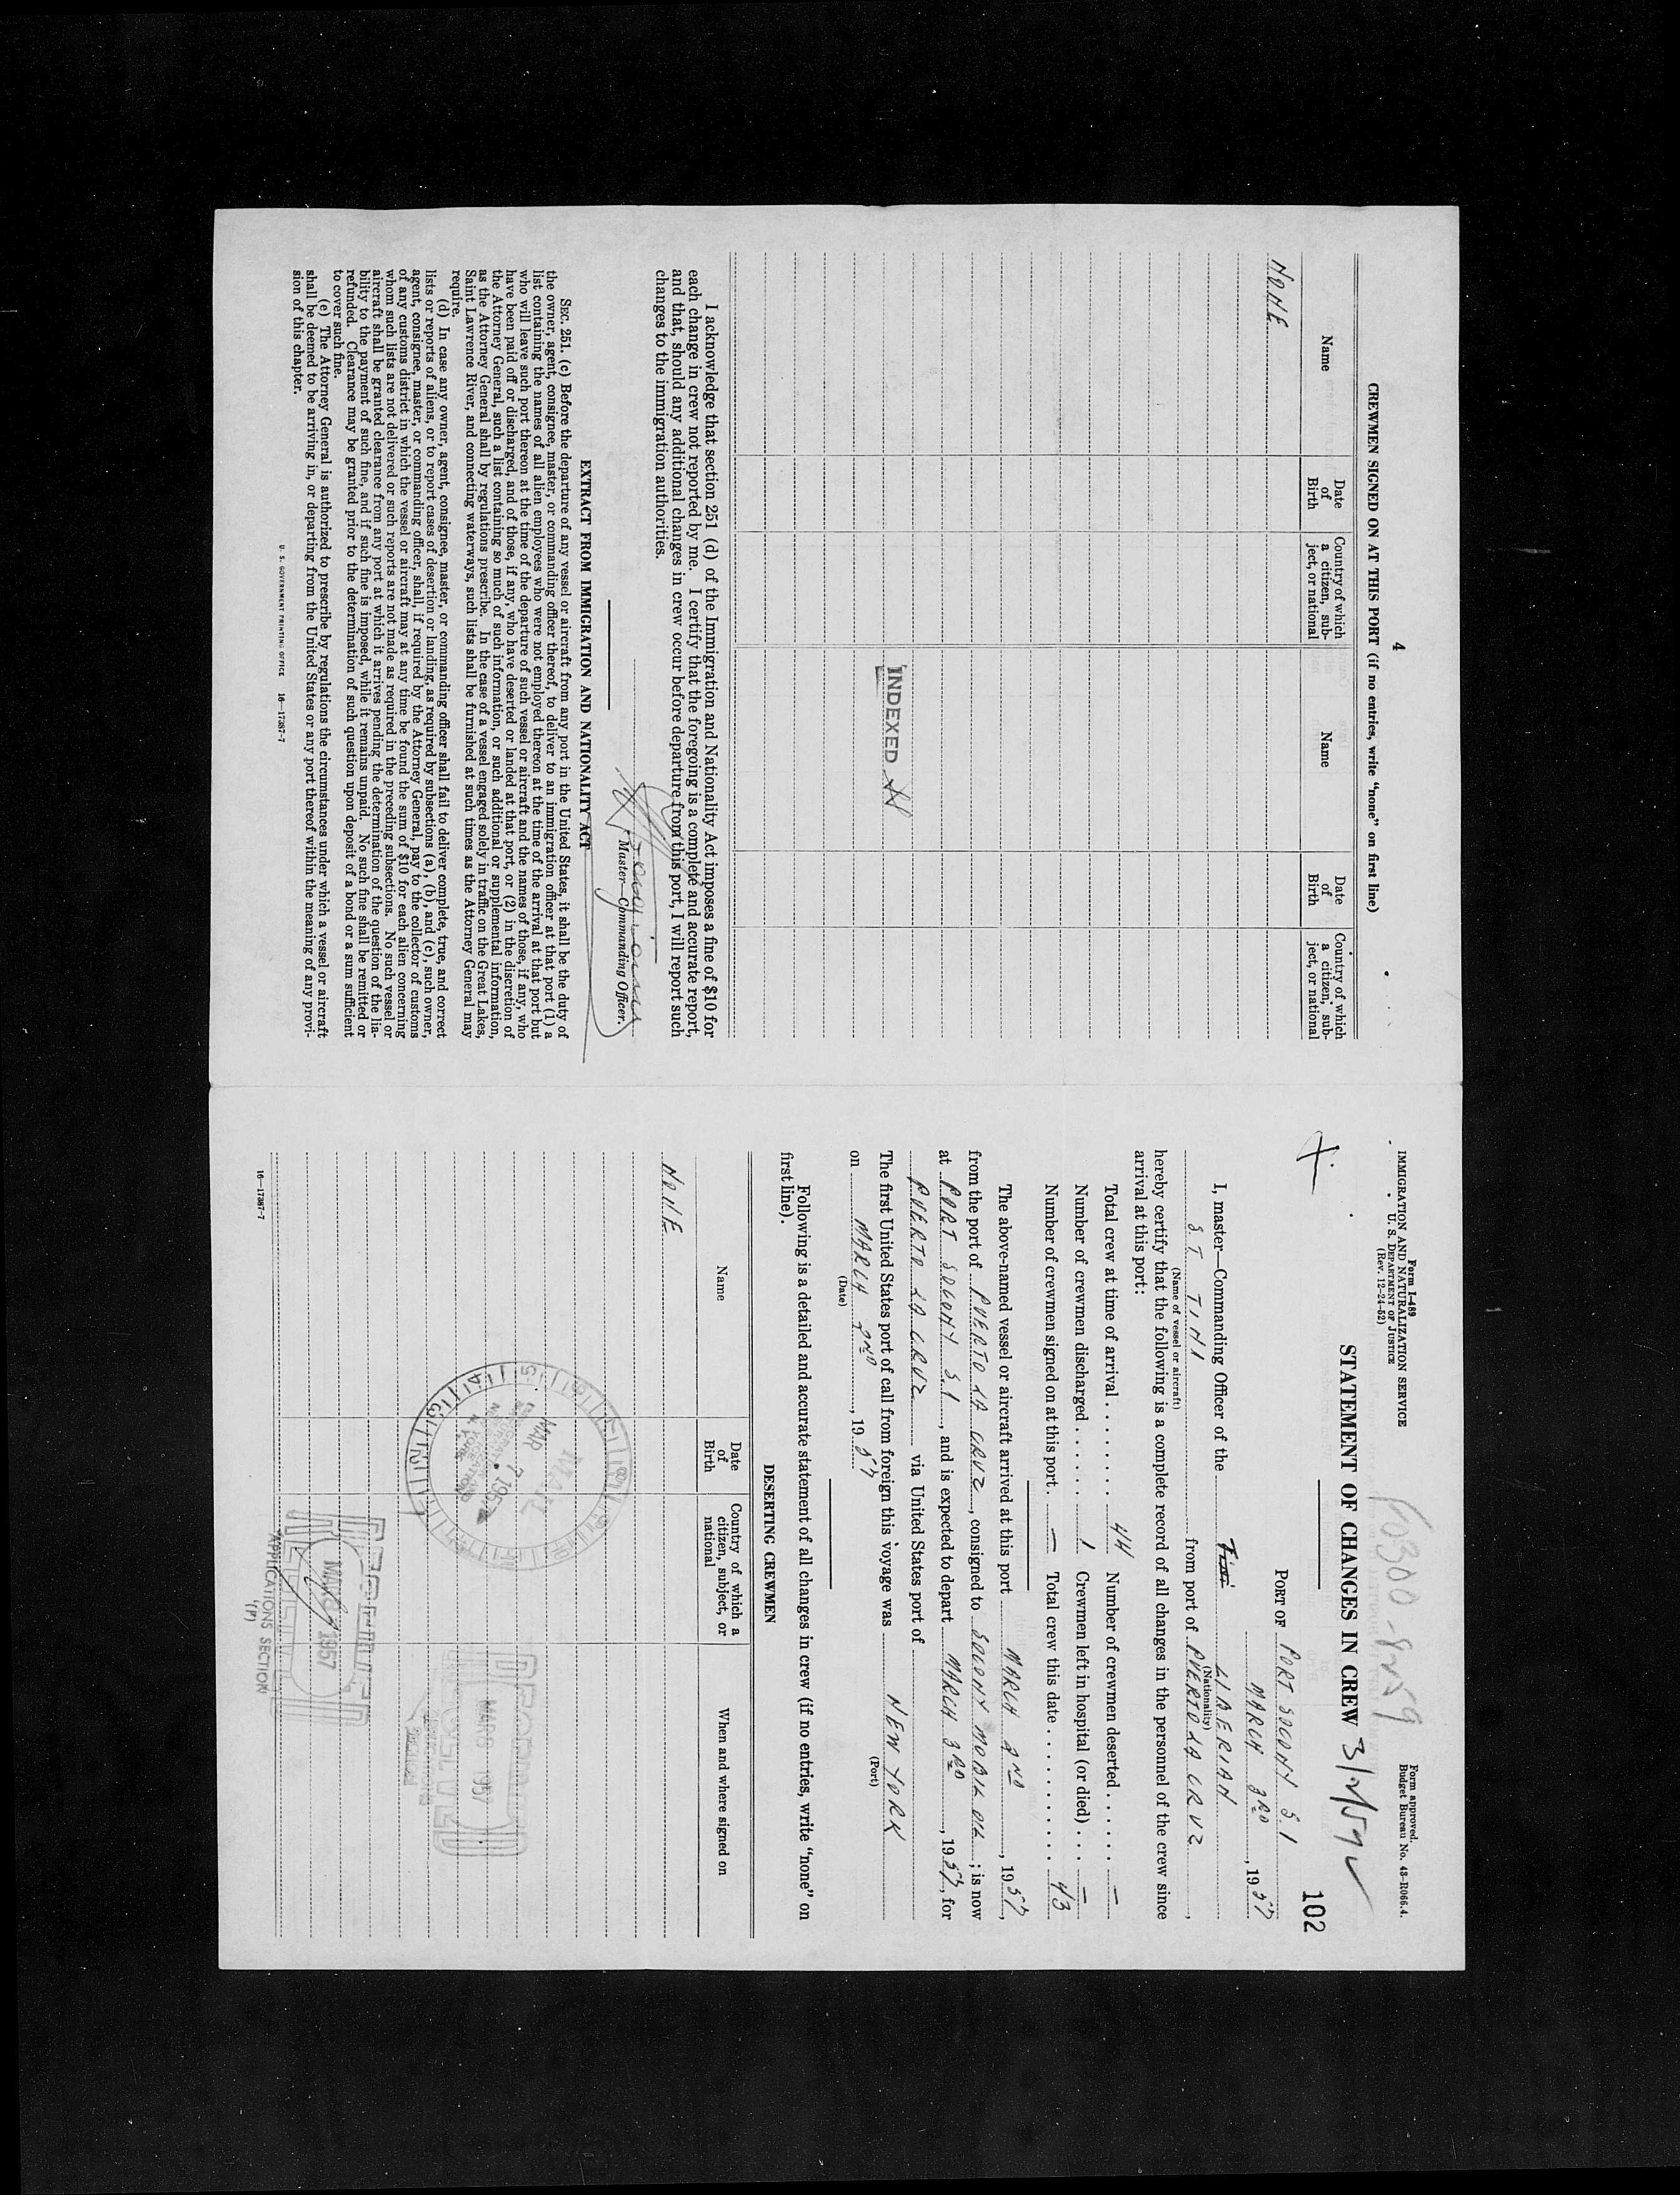 4
CREWMEN SIGNED ON AT THIS PORT (if no entries, write "none" on first line)
Name
Date of Birth
Country of which a citizen, sub-ject, or national
Name
Date of Birth
Country of which a citizen, sub-ject, or national
NONE
INDEXED
I acknowledge that section 251 (d) of the Immigration and Nationality Act imposes a fine of $10 for
each change in crew not reported by me. I certify that the foregoing is a complete and accurate report,
and that, should any additional changes in crew occur before departure from this port, I will report such
changes to the immigration authorities.
Master—Commanding Officer.
EXTRACT FROM IMMIGRATION AND NATIONALITY ACT
SEC. 251. (c) Before the departure of any vessel or aircraft from any port in the United States, it shall be the duty of
the owner, agent, consignee, master, or commanding officer thereof, to deliver to an immigration officer at that port (1) a
list containing the names of all alien employees who were not employed thereon at the time of the arrival at that port but
who will leave such port thereon at the time of the departure of such vessel or aircraft and the names of those, if any, who
have been paid off or discharged, and of those, if any, who have deserted or landed at that port, or (2) in the discretion of
the Attorney General, such a list containing so much of such information, or such additional or supplemental information,
as the Attorney General shall by regulations prescribe. In the case of a vessel engaged solely in traffic on the Great Lakes,
Saint Lawrence River, and connecting waterways, such lists shall be furnished at such times as the Attorney General may
require.
(d) In case any owner, agent, consignee, master, or commanding officer shall fail to deliver complete, true, and correct
lists or reports of aliens, or to report cases of desertion or landing, as required by subsections (a), (b), and (c), such owner,
agent, consignee, master, or commanding officer, shall, if required by the Attorney General, pay to the collector of customs
of any customs district in which the vessel or aircraft may at any time be found the sum of $10 for each alien concerning
whom such lists are not delivered or such reports are not made as required in the preceding subsections. No such vessel or
aircraft shall be granted clearance from any port at which it arrives pending the determination of the question of the lia-
bility to the payment of such fine, and if such fine is imposed, while it remains unpaid. No such fine shall be remitted or
refunded. Clearance may be granted prior to the determination of such question upon deposit of a bond or a sum sufficient
to cover such fine.
(e) The Attorney General is authorized to prescribe by regulations the circumstances under which a vessel or aircraft
shall be deemed to be arriving in, or departing from the United States or any port thereof within the meaning of any provi-
sion of this chapter.
U. S. GOVERNMENT PRINTING OFFICE 16—17367-7
Form I-489
IMMIGRATION AND NATURALIZATION SERVICE
U. S. DEPARTMENT OF JUSTICE
(Rev. 12-24-52)
Form approved.
Budget Bureau No. 43-R066.4.
102
STATEMENT OF CHANGES IN CREW
PORT OF PORT SOCONY S.I
MARCH 3RD, 1957
I, master—Commanding Officer of the LIBERIAN
(Nationality)
ST TINI from port of PUERTO LA CRUZ,
(Name of vessel or aircraft)
hereby certify that the following is a complete record of all changes in the personnel of the crew since
arrival at this port:
Total crew at time of arrival 44 Number of crewmen deserted —
Number of crewmen discharged 1 Crewmen left in hospital (or died) —
Number of crewmen signed on at this port — Total crew this date 43
The above-named vessel or aircraft arrived at this port MARCH 2ND, 1957,
from the port of PUERTO LA CRUZ, consigned to SOCONY MOBIL OIL; is now
at PORT SOCONY S.I, and is expected to depart MARCH 3RD, 1957, for
PUERTO LA CRUZ via United States port of
The first United States port of call from foreign this voyage was NEW YORK
(Port)
on MARCH 2ND, 1957
(Date)
Following is a detailed and accurate statement of all changes in crew (if no entries, write "none" on
first line).
DESERTING CREWMEN
Name
Date of Birth
Country of which a citizen, subject, or national
When and where signed on
NONE
MAIL
MAR 7 1957
MAR 8 1957
RECEIVED
MAR 1957
APPLICATIONS SECTION
(P)
16—17367-7